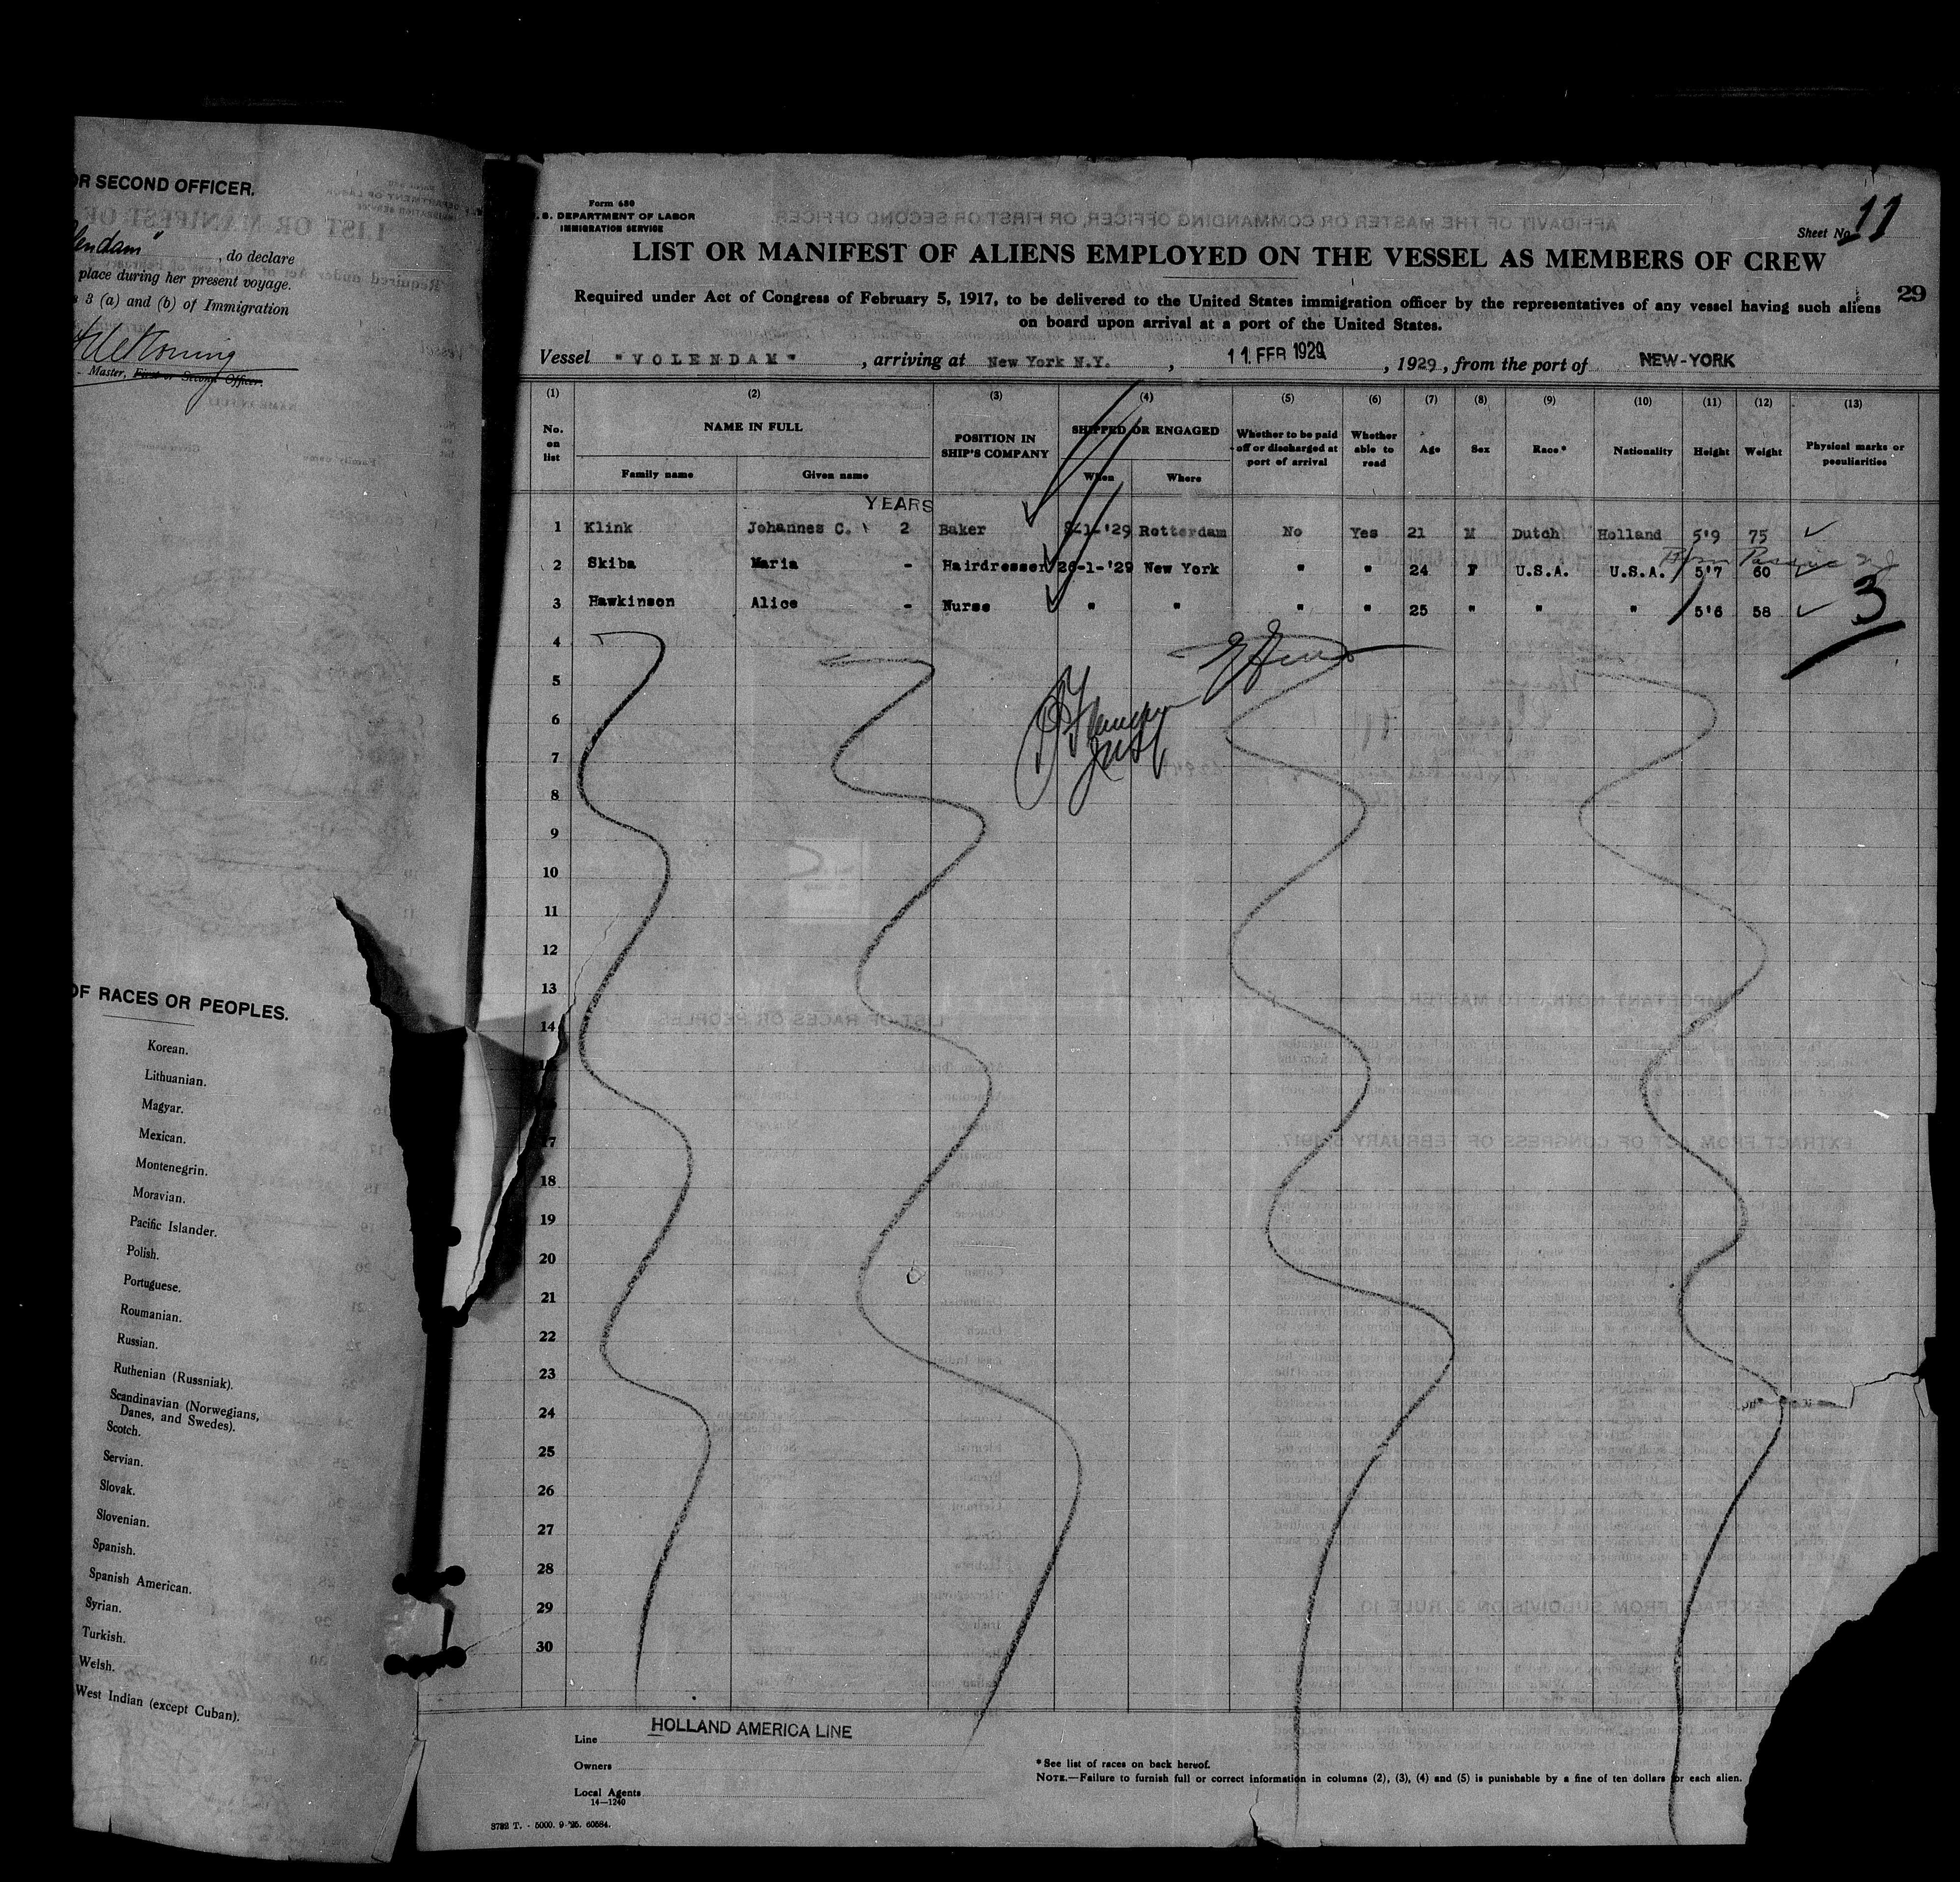 OR SECOND OFFICER.
lendam"
, do declare
place during her present voyage.
3 (a) and (b) of Immigration
Master, First or Second Officer.
OF RACES OR PEOPLES.
Korean.
Lithuanian.
Magyar.
Mexican.
Montenegrin.
Moravian.
Pacific Islander.
Polish.
Portuguese.
Roumanian.
Russian.
Ruthenian (Russniak).
Scandinavian (Norwegians,
Danes, and Swedes).
Scotch.
Servian.
Slovak.
Slovenian.
Spanish.
Spanish American.
Syrian.
Turkish.
Welsh.
West Indian (except Cuban).
Form 680
U.S. DEPARTMENT OF LABOR
IMMIGRATION SERVICE
Sheet No. 11
LIST OR MANIFEST OF ALIENS EMPLOYED ON THE VESSEL AS MEMBERS OF CREW
29
Required under Act of Congress of February 5, 1917, to be delivered to the United States immigration officer by the representatives of any vessel having such aliens
on board upon arrival at a port of the United States.
Vessel "VOLENDAM" , arriving at New York N.Y. , 11 FEB 1929 , 1929 , from the port of NEW-YORK
(1) (2) (3) (4) (5) (6) (7) (8) (9) (10) (11) (12) (13)
No. on list NAME IN FULL Family name Given name POSITION IN SHIP'S COMPANY SHIPPED OR ENGAGED When Where Whether to be paid off or discharged at port of arrival Whether able to read Age Sex Race* Nationality Height Weight Physical marks or peculiarities
YEARS
1 Klink Johannes C. 2 Baker 8-1-'29 Rotterdam No Yes 21 M Dutch Holland 5'9 75
2 Skiba Maria - Hairdresser 26-1-'29 New York " " 24 F U.S.A. U.S.A. 5'7 60
3 Hawkinson Alice - Nurse " " " " 25 " " " 5'6 58
3
4
5
6
7
8
9
10
11
12
13
14
15
17
18
19
20
21
22
23
24
25
26
27
28
29
30
Line HOLLAND AMERICA LINE
Owners
Local Agents
14—1240
*See list of races on back hereof.
NOTE.—Failure to furnish full or correct information in columns (2), (3), (4) and (5) is punishable by a fine of ten dollars for each alien.
3782 T. - 5000. 9-'25. 60584.